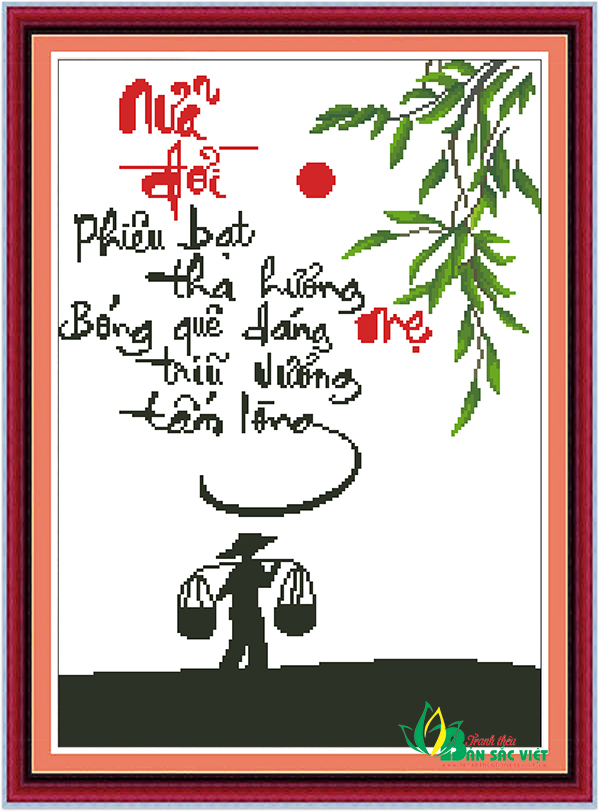 Nửa
đời
Phiêu bạt
tha hương
Bóng quê dáng mẹ
trĩu vương
tấm lòng
Tranh thêu
BẢN SẮC VIỆT